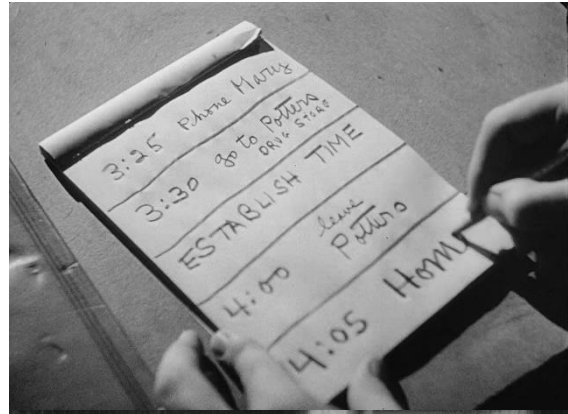 3:25 Phone Mary
3:30 go to Potters
DRUG STORE
ESTABLISH TIME
4:00 leave
Potters
4:05 Hom